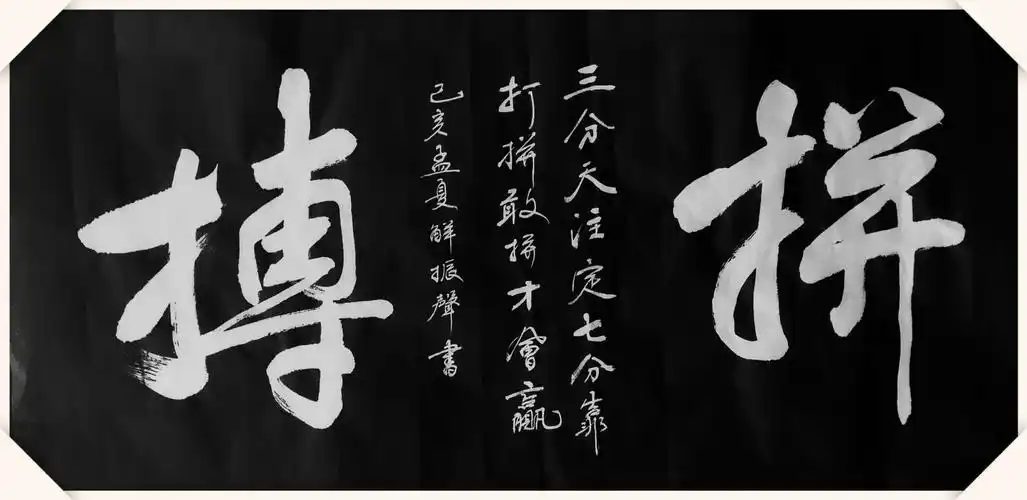 拼
三分天注定七分靠
打拼敢拼才會贏
己亥孟夏解振聲書
搏